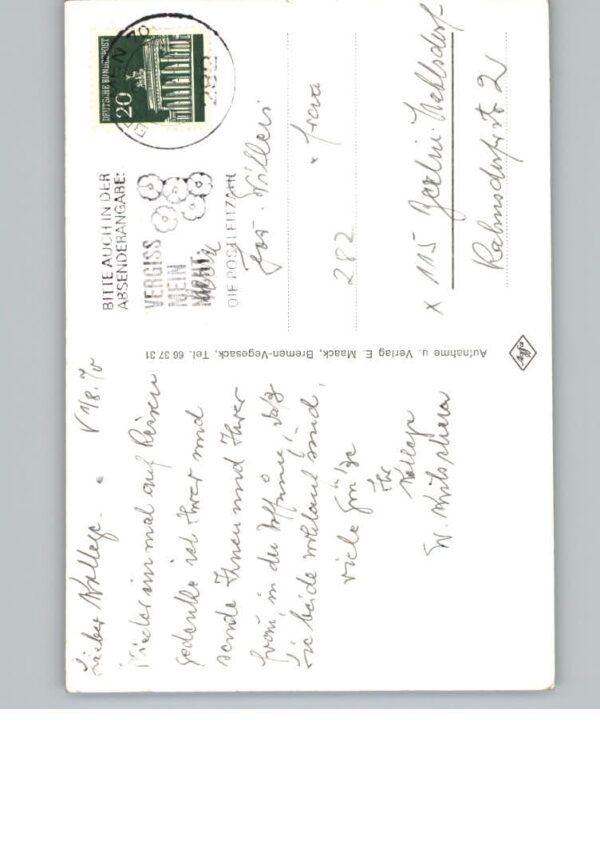 Lieber Kollege.
V 1/8.70
Wieder einmal auf Reisen
gedenke ich Ihrer und
sende Ihnen und Ihrer
Frau, in der Hoffnung, daß
Sie beide wohlauf sind,
viele Grüße
Ihr
Kollege
W.
BITTE AUCH IN DER
ABSENDERANGABE:
VERGISS
MEIN
NICHT
DIE POSTLEITZAHL
DEUTSCHE BUNDESPOST
20
282
x 115 Berlin-Mahlsdorf
Rahnsdorferstr 2
Aufnahme u. Verlag E. Maack, Bremen-Vegesack, Tel. 66 37 31
Agfa